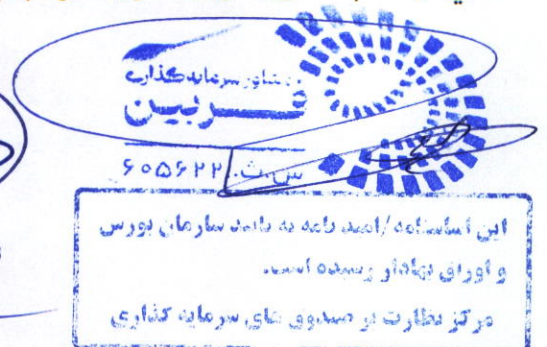 مشاور سرمایه‌گذاری
قربین
س.ث. ۶۰۵۶۲۲
این اساسنامه/امید نامه به تایید سازمان بورس
و اوراق بهادار رسیده است.
مرکز نظارت بر صندوق های سرمایه گذاری